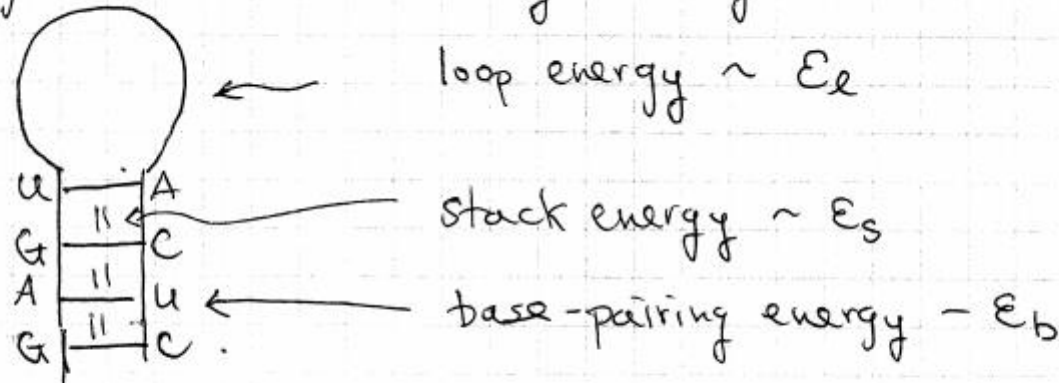 loop energy ~ εℓ
U A
stack energy ~ εs
G C
A U
base-pairing energy - εb
G C .